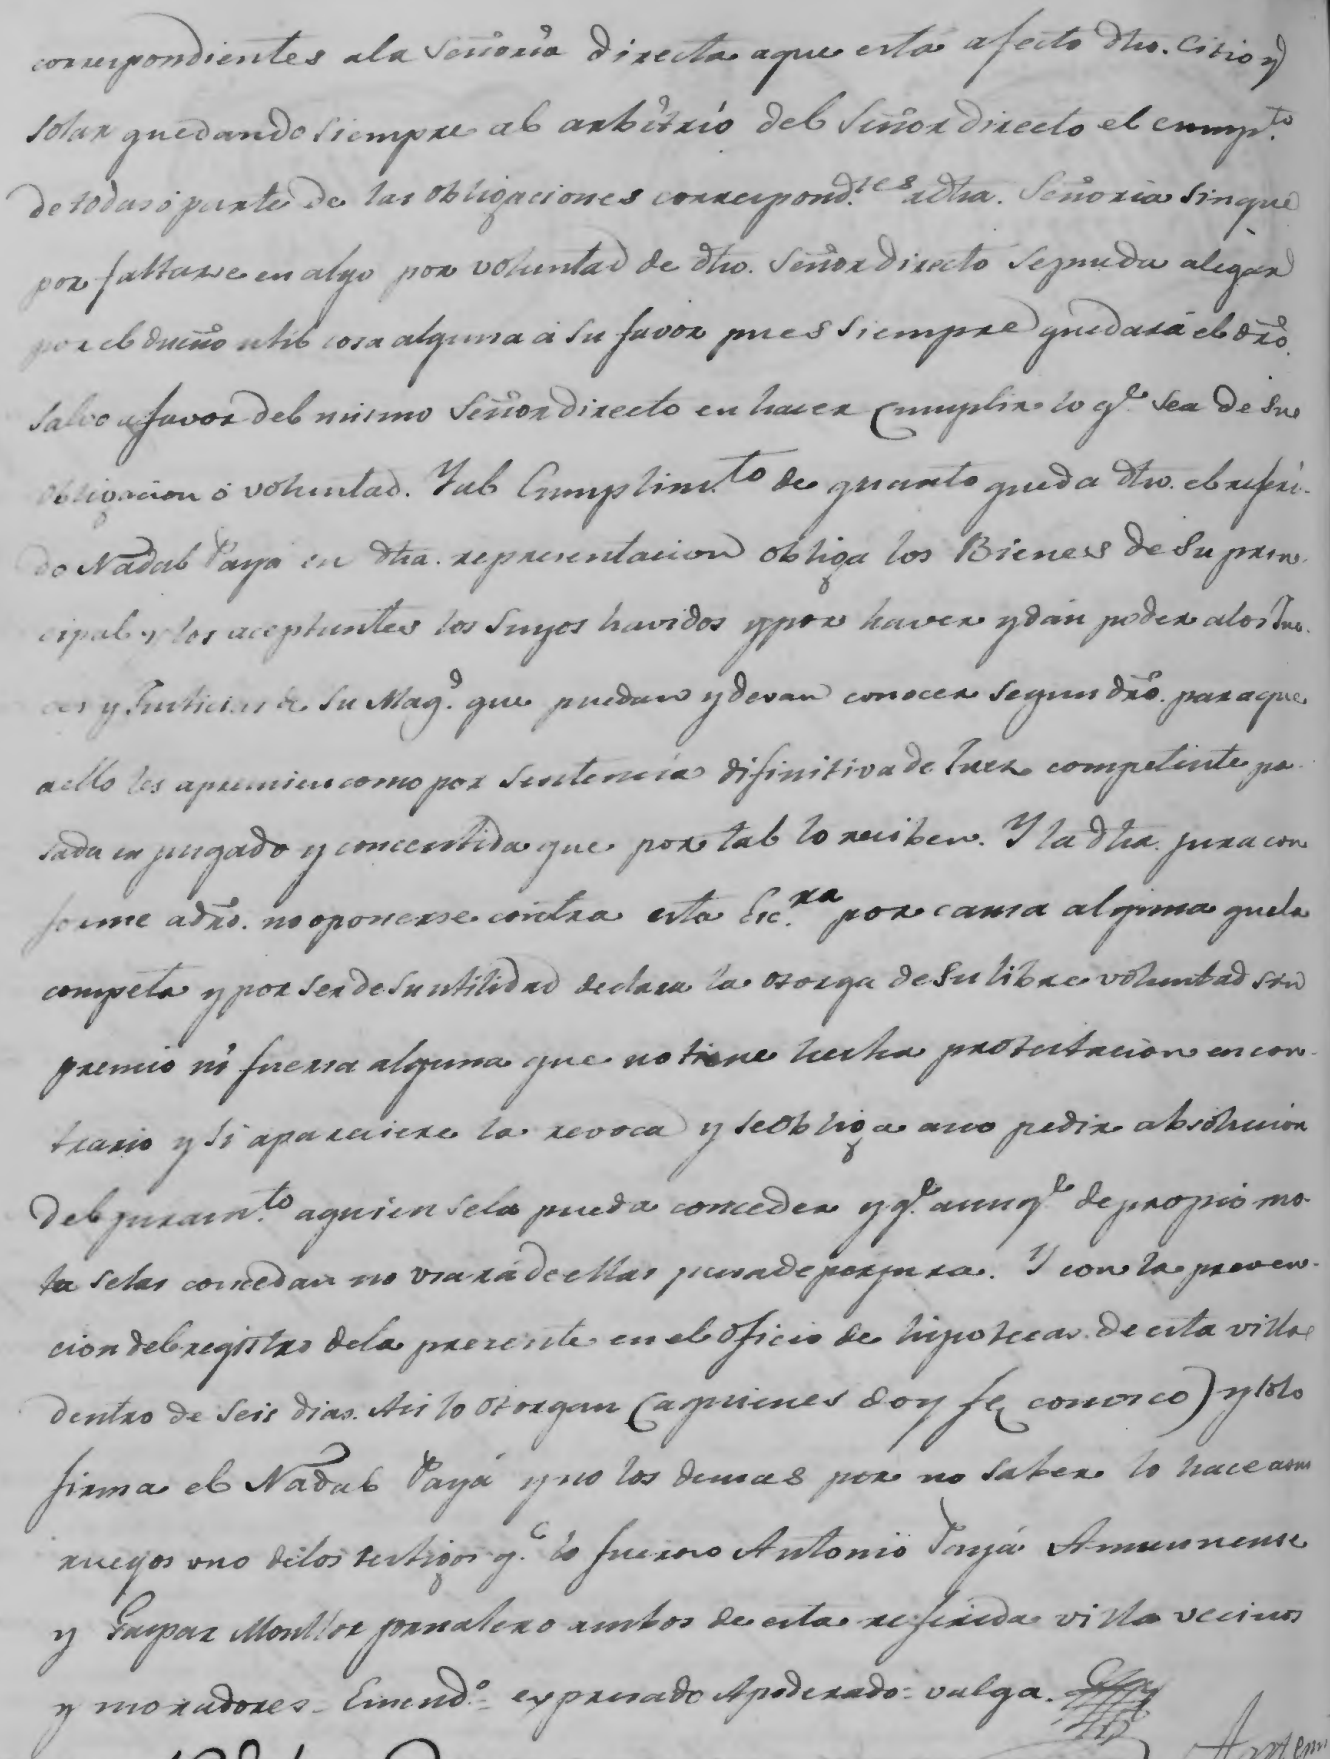 correspondientes ala Señoria directa aque está afecto dho. Citio y
solar quedando siempre al arbitrio del Señor directo el cump.to
de todas ó parte de las obligaciones correspond.tes adha. Señoria sinque
por faltarse en algo por voluntad de dho. Señor directo sepueda alegar
por el dueño util cosa alguna á su favor pues siempre quedará el dro.
salvo afavor del mismo Señor directo en hacer cumplir lo q.e sea de su
obligacion ó voluntad. Yal Cumplim.to de quanto queda dho. el referi-
do Nadal Payá en dha. representacion obliga los Bienes de su prin-
cipal y los aceptantes los suyos havidos y por haver y dán poder alos Jue-
ces y Justicias de su Mag.d que puedan y devan conocer segun dro. paraque
aello les apremien como por sentencia difinitiva de Juez competente pa-
sada en jusgado y concentida que por tal lo reciben. Y la dha. jura con
forme adro. no oponerse contra esta Esc.ra por causa alguna quela
competa y por ser de su utilidad declara la otorga de su libre voluntad sin
premio ni fuersa alguna que no tiene hecha protestacion en con-
trario y si apareciere la revoca y se obliga ano pedir absolucion
del juram.to aquien sela pueda conceder y q.e aunq.e de propio mo-
tu selas concedan no usará de ellas pena de perjura. Y con la preven-
cion del registro dela presente en el oficio de hipotecas de esta villa
dentro de seis dias. Asi lo otorgan (aquienes doy fe conosco) y solo
firma el Nadal Payá y no los demas por no saber lo hace asus
ruegos uno delos testigos q.e lo fueron Antonio Payá Amanuense
y Gaspar Monllor jornalero ambos de esta referida villa vecinos
y moradores - Emend.o = expresado Apoderado = valga.